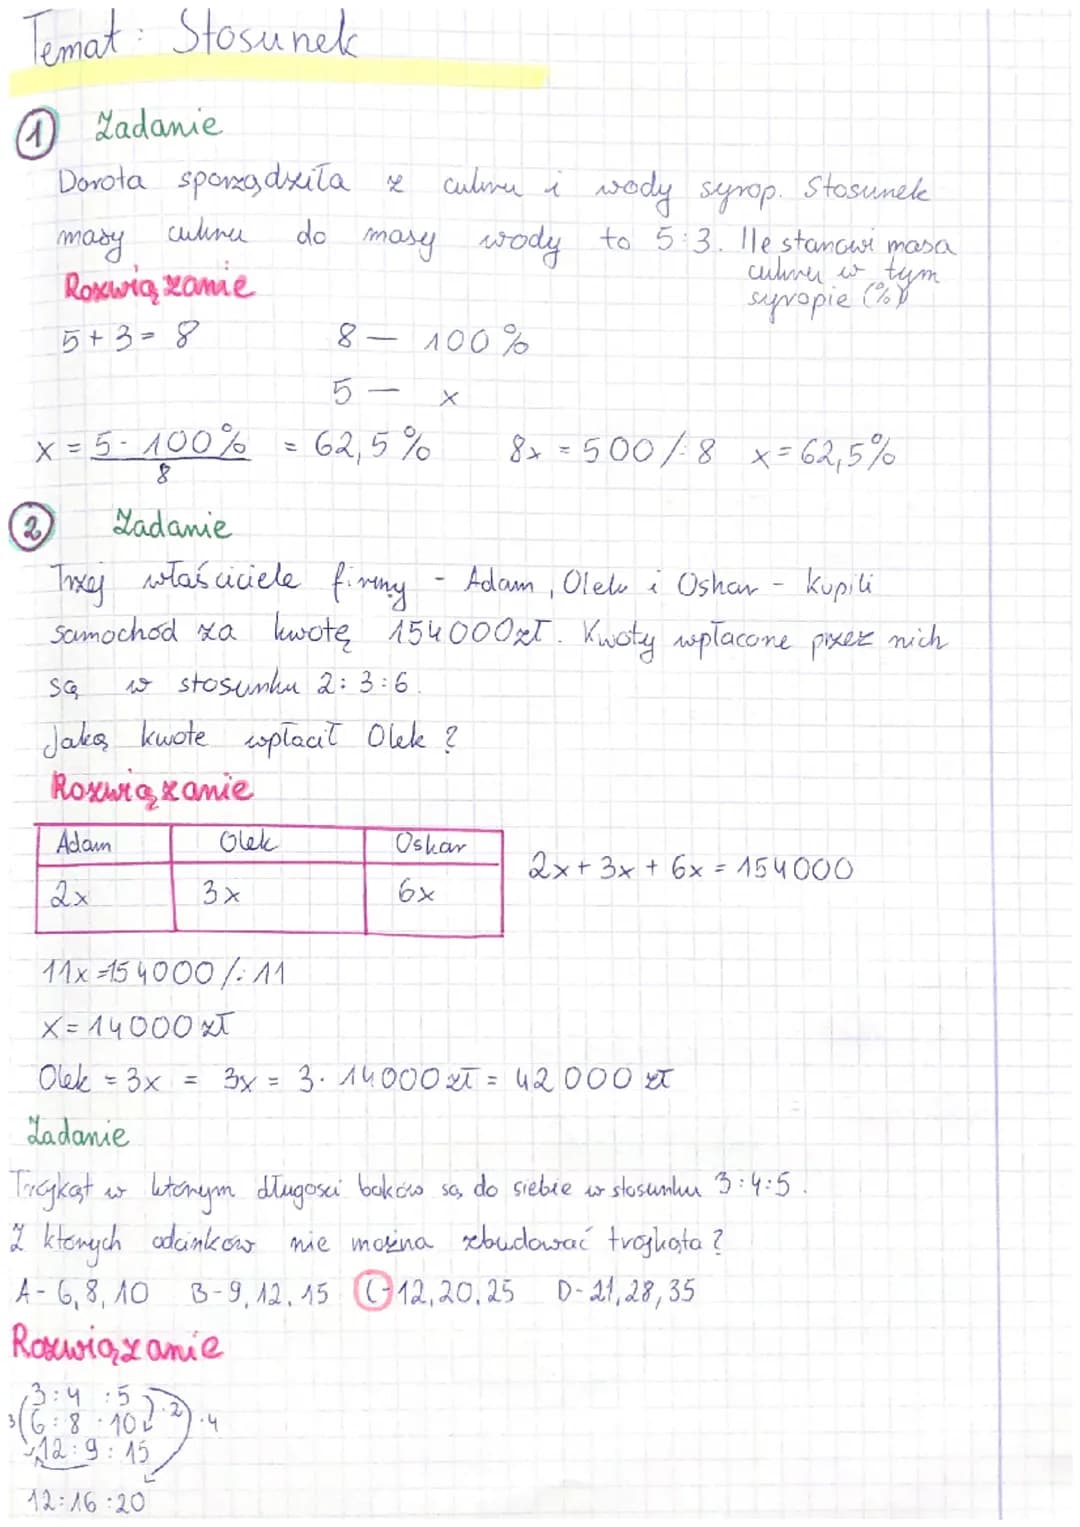 Temat: Stosunek
1 Zadanie
Dorota sporządziła z cukru i wody syrop. Stosunek
masy cukru do masy wody to 5:3. Ile stanowi masa
cukru w tym
syropie (%)
Rozwiązanie
5+3=8 8 — 100%
5 — x
x = 5·100% / 8 = 62,5% 8x = 500 /:8 x=62,5%
2 Zadanie
Trzej właściciele firmy - Adam, Olek i Oskar - kupili
samochód za kwotę 154000zł. Kwoty wpłacone przez nich
są w stosunku 2:3:6.
Jaką kwote wpłacił Olek?
Rozwiązanie
Adam Olek Oskar
2x 3x 6x
2x+3x+6x=154000
11x=154000/:11
x=14000zł
Olek = 3x = 3x = 3·14000zł = 42000 zł
Zadanie
Trójkąt w którym długosci boków są do siebie w stosunku 3:4:5.
Z których odcinków nie można zbudować trójkąta?
A-6,8,10 B-9,12,15 C-12,20,25 D-21,28,35
Rozwiązanie
3:4:5
3 6:8:10 ·2 ·4
12:9:15
12:16:20